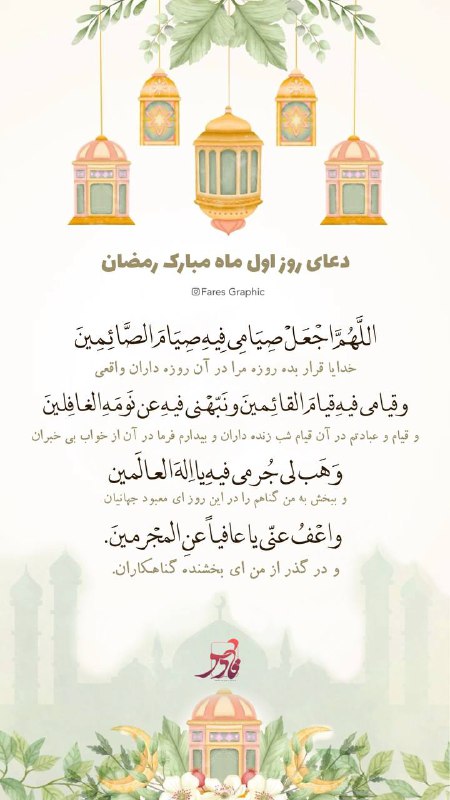 دعای روز اول ماه مبارک رمضان
Fares Graphic
اللَّهُمَّ اجْعَلْ صِيَامِي فِيهِ صِيَامَ الصَّائِمِينَ
خدایا قرار بده روزه مرا در آن روزه داران واقعی
وقيامى فيهِ قيامَ القائِمينَ ونَبّهْنى فيهِ عن نَومَةِ الغافِلينَ
و قیام و عبادتم در آن قیام شب زنده داران و بیدارم فرما در آن از خواب بی خبران
وَهَب لى جُرمى فيهِ يا الهَ العالَمين
و ببخش به من گناهم را در این روز ای معبود جهانیان
واعْفُ عنّى يا عافياً عنِ المجْرمينَ.
و در گذر از من ای بخشنده گناهکاران.